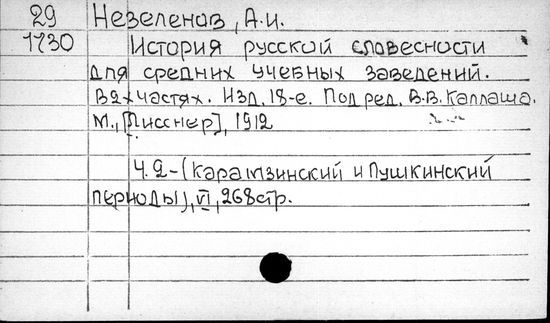 29 Незеленов, А.и.
1730 История русской словесности
для средних учебных заведений.
В 2х частях. Изд. 18-е. Под ред. В.В. Каллаша.
М., [Лисснер], 1912
Ч. 2-(Карамзинский и Пушкинский
периоды), VI, 268 стр.